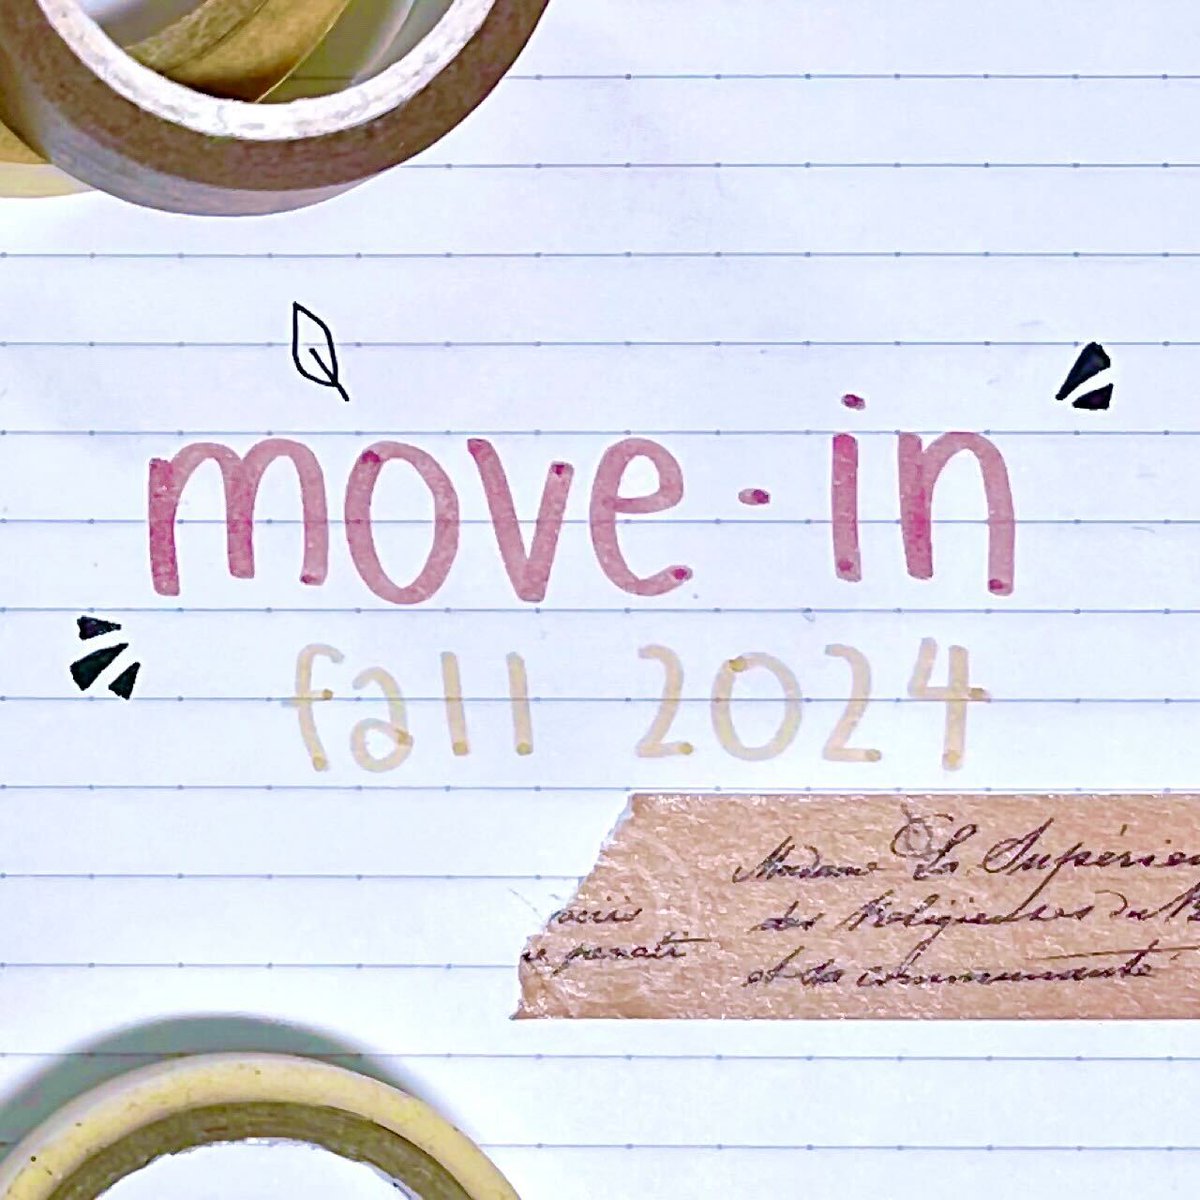 move-in
fall 2024
Madame La Supérieu
des Religieuses du
et de la communauté